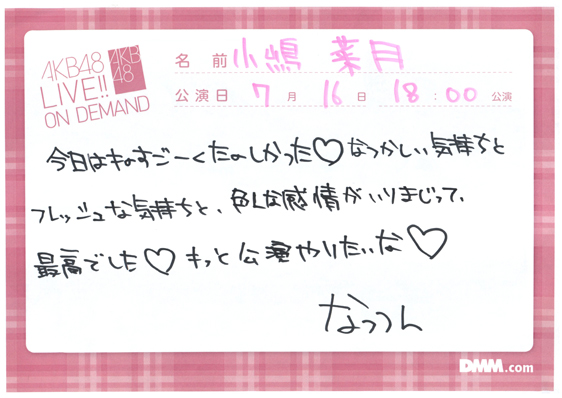 AKB48
LIVE!!
ON DEMAND
AKB
48
名前 小嶋 菜月
公演日 7月16日 18:00公演
今日はものすごーくたのしかった♡なつかしい気持ちと
フレッシュな気持ちと、色んな感情がいりまじって、
最高でした♡もっと公演やりたいな♡
なっつん
DMM.com